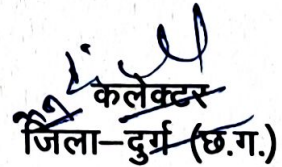 कलेक्टर
जिला–दुर्ग (छ.ग.)